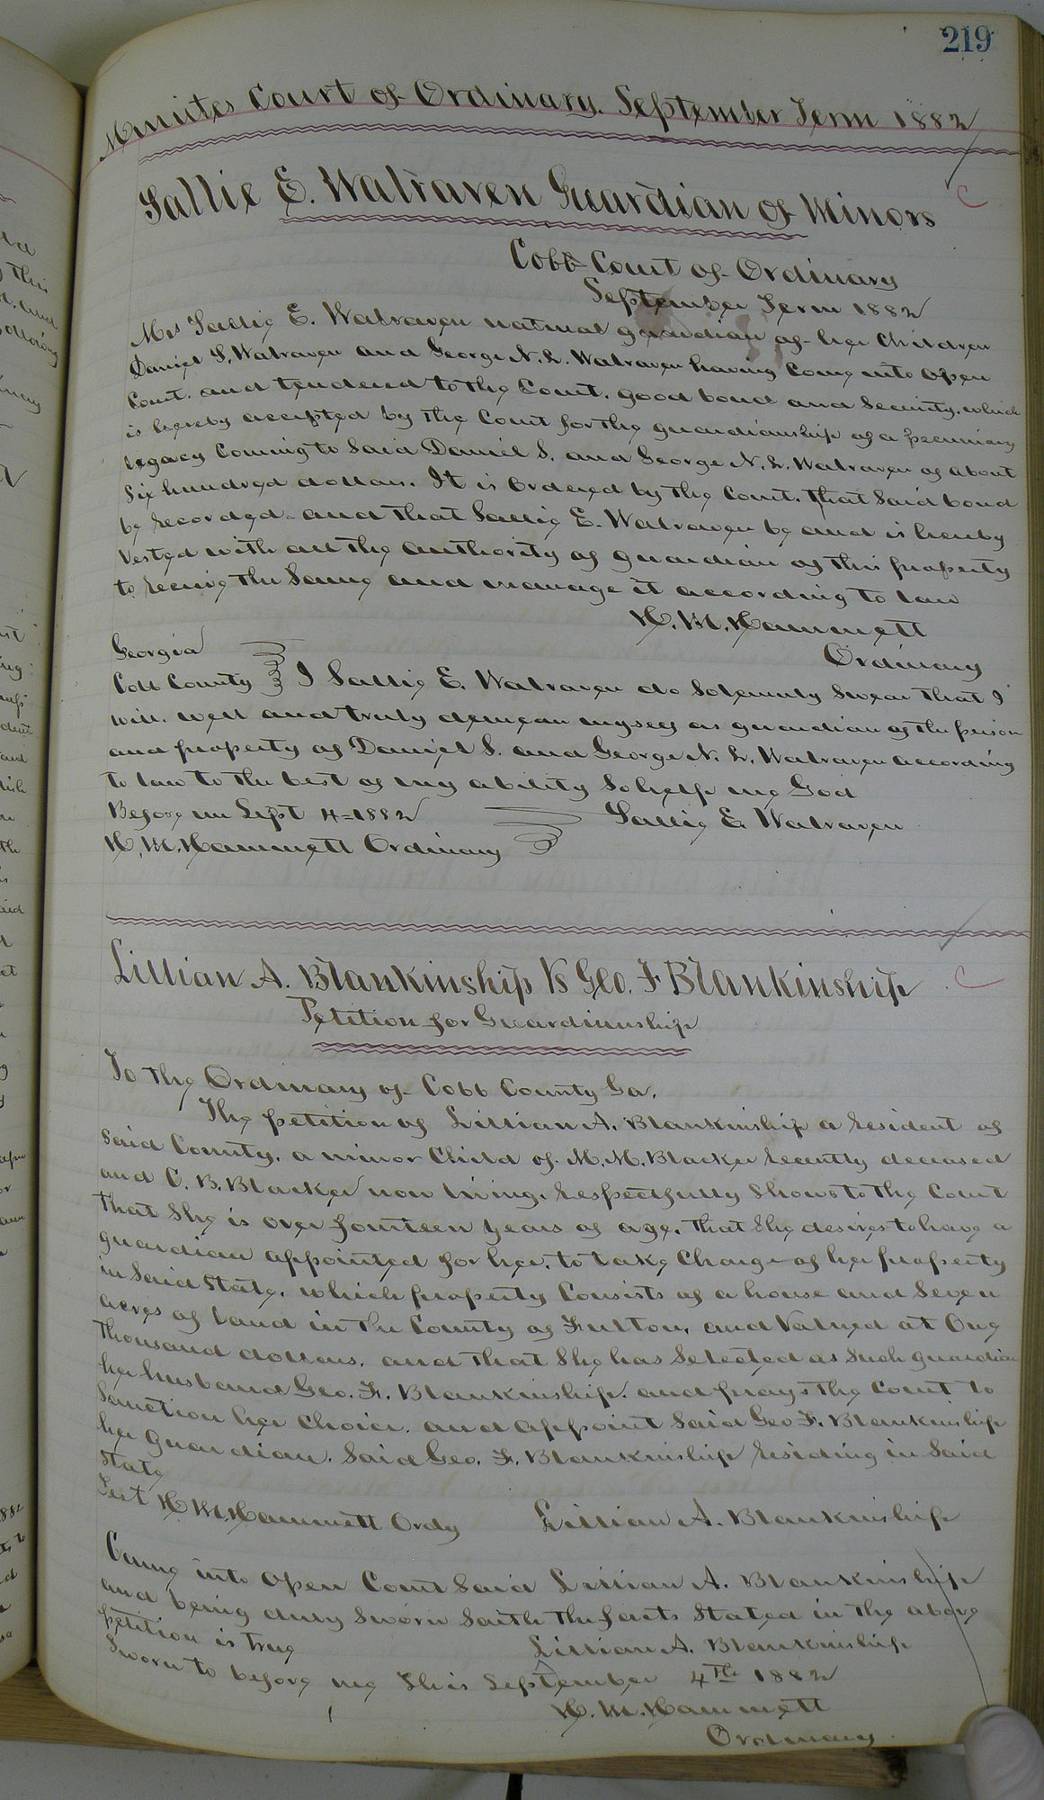 219
Minutes Court of Ordinary. September Term 1882
Sallie E. Walraven Guardian of Minors
C
Cobb Court of Ordinary
September Term 1882
Mrs Sallie E. Walraven natural guardian of her Children
Daniel S. Walraven and George N. L. Walraven having Come into Open
Court. and tendered to the Court. good bond and Security, which
is hereby accepted by the Court for the guardianship of a pecuniary
legacy Coming to Said Daniel S. and George N. L. Walraven of about
Six hundred dollars. It is Ordered by the Court. that Said bond
be recorded and that Sallie E. Walraven be and is hereby
Vested with all the authority of guardian of this property
to receive the Same and manage it according to law
H. M. Hammett
Ordinary
Georgia
Cobb County I Sallie E. Walraven do Solemnly Swear that I
will. well and truly demean myself as guardian of the person
and property of Daniel S. and George N. L. Walraven according
to law to the best of my ability So help me God
Before me Sept 4-1882 Sallie E. Walraven
H. M. Hammett Ordinary
Lillian A. Blankinship Vs Geo. F Blankinship
C
Petition for Guardianship
To the Ordinary of Cobb County Ga.
The petition of Lillian A. Blankinship a resident of
Said County. a minor Child of M. M. Blacker recently deceased
and C. B. Blacker now living. respectfully Shows to the Court
that She is over fourteen years of age. that She desires to have a
guardian appointed for her. to take Charge of her property
in Said State. which property Consists of a house and Seven
acres of land in the County of Fulton. and Valued at One
thousand dollars. and that She has Selected as Such guardian
her husband Geo. F. Blankinship. and prays the Court to
Sanction her Choice. and appoint Said Geo F. Blankinship
her guardian. Said Geo. F. Blankinship residing in Said
State
Test H. M. Hammett Ordy Lillian A. Blankinship
Came into Open Court Said Lillian A. Blankinship
and being duly Sworn Saith the facts Stated in the above
petition is true
Lillian A. Blankinship
Sworn to before me this September 4th 1882
H. M. Hammett
Ordinary